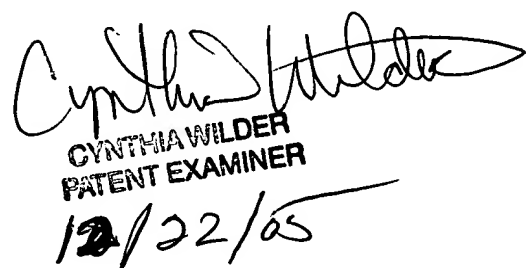 Cynthia Wilder
CYNTHIA WILDER
PATENT EXAMINER
12/22/05